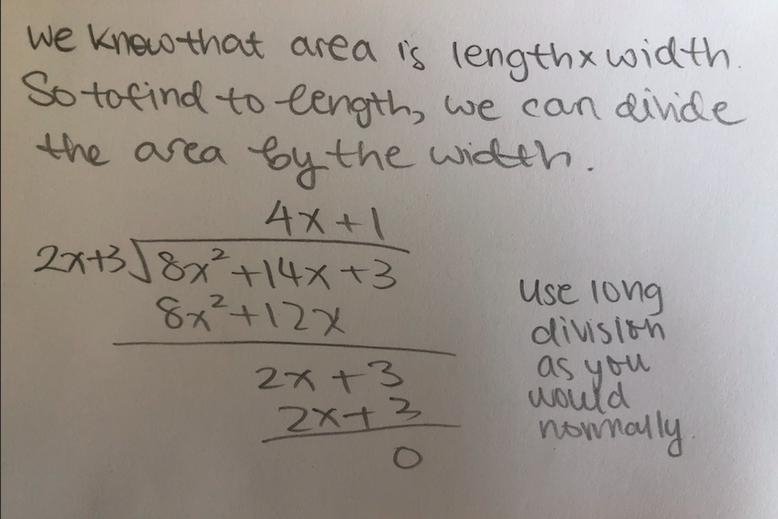 We know that area is length x width.
So to find to length, we can divide
the area by the width.
4x + 1
2x+3 ) 8x² + 14x + 3
8x² + 12x
2x + 3
2x + 3
0
use long
division
as you
would
normally.